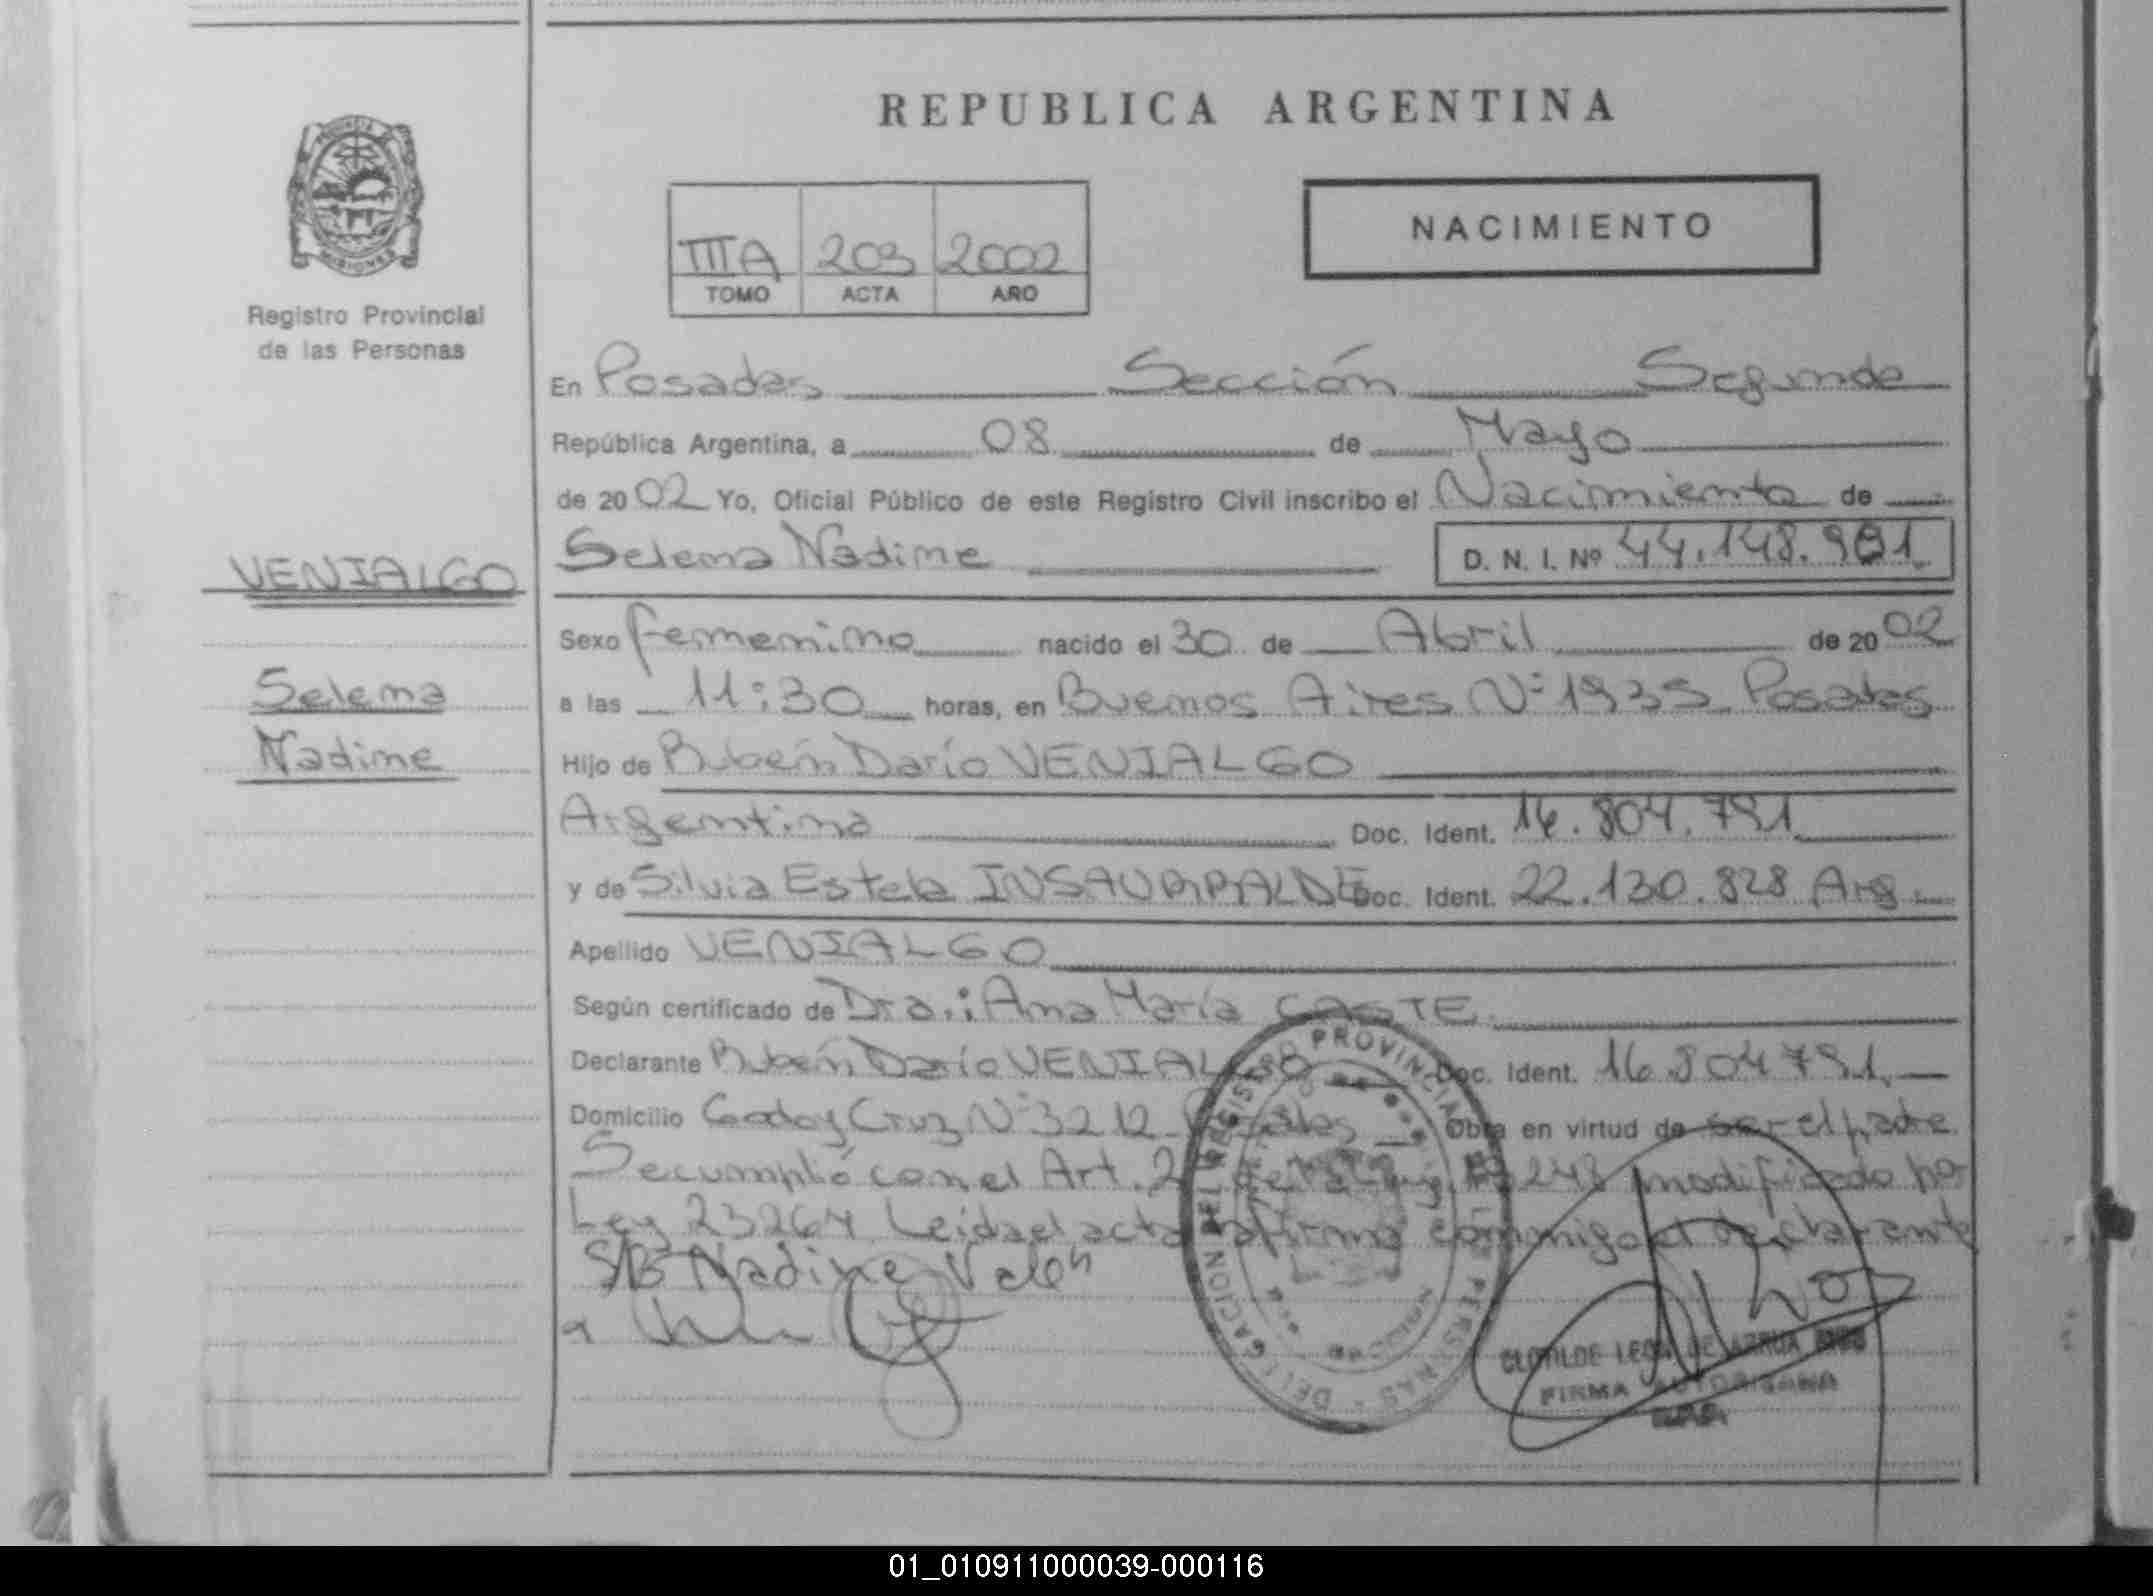 REPUBLICA ARGENTINA
PROVINCIA
MISIONES
Registro Provincial
de las Personas
NACIMIENTO
IIIA 203 2002
TOMO ACTA AÑO
En Posadas Sección Segunda
República Argentina, a 08 de Mayo
de 2002 Yo, Oficial Público de este Registro Civil inscribo el Nacimiento de
VENIALGO
Selena Nadine D. N. I. Nº 44.148.981
Sexo femenino nacido el 30 de Abril de 2002
Selena
a las 11:30 horas, en Buenos Aires Nº 1935 Posadas
Nadine
Hijo de Rubén Darío VENIALGO
Argentina Doc. Ident. 16.804.791
y de Silvia Estela INSAURRALDE Doc. Ident. 22.130.828 Arg.
Apellido VENIALGO
Según certificado de Dra.: Ana María CASTE
Declarante Rubén Darío VENIALGO Doc. Ident. 16.804791.
Domicilio Godoy Cruz Nº 3212 Posadas Obra en virtud de ser el padre.
Se cumplió con el Art. 2 de la Ley modificado por
Ley 23264 Leida el acta la firma conmigo el declarante
S/B Nadine Vale
DELEGACION DEL REGISTRO PROVINCIAL DE LAS PERSONAS
CLOTILDE LEON DE ARRUA
FIRMA AUTORIZADA
01_010911000039-000116